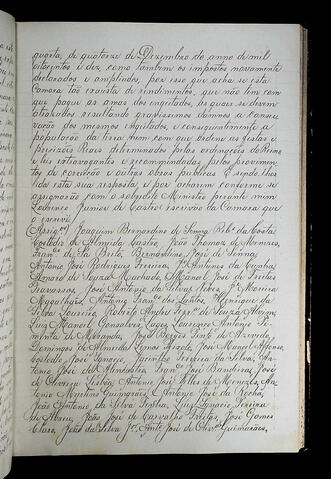 quarta de quatorze de Dezembro do anno de mil
oitocentos e dez, como tambem os impostos novamente
declarados e ampliados, por isso que acha se esta
Camara tão exausta de rendimentos, que não tem com
que pague as amas dos engeitados, ás quais se devem
atrazados resultando gravissimos damnos a conser
vação dos mesmos engeitados, e conseguintemente a
população da terra nem com q ordene as festas e
precizões Reaes determinadas pelas ordenações do Reino
e leis extravagantes e recommendadas pelos provimen
tos de correição e outras obras publicas. E sendo lhes
lida esta sua resposta e por acharem conforme se
assignarão com o sobredito Ministro perante mim
Lourenço Junior de Castro escrivão da Camara que
o escrevi.
(Assig.es) Joaquim Bernardino de Senna Rib.o da Costa
Custodio de Almeida Castro, João Thomas de Menezes,
Fran.co de Sa Brito, Bernardino José de Senna,
Antonio José Rodrigues Ferreira, J.e Antunes da Cunha,
Leonard de Souza Machado, Manoel José de Freitas
Travassos, José Antonio da Silva Neves, J.e Moreira
Magalhães, Antonio Fran.co dos Santos, Henrique da
Silva Loureiro, Roberto André Fer.a de Souza Alvim,
Luiz Manoel Gonsalves Lages, Lourenço Antonio Fe
de Miranda, José Borges Pinto de Azevedo,
Domingos de Almeida Lima, José Manoel Affonso,
Custodio José Ignacio, Jacintho Ferreira da Silva, An
tonio José de Mendonça, Fran.co José Bandeira, José
de Oliveira Lisboa, Antonio José Telles de Menezes, An
tonio Avelino Guimarães, Antonio José da Rocha,
João Antonio da Silva Simões, Luiz Ignacio Pereira
de Abreu, João José de Carvalho Freitas, José Gomes
Claro, José da Silva J.or, Ant.o José de Oliv.a Guimarães,